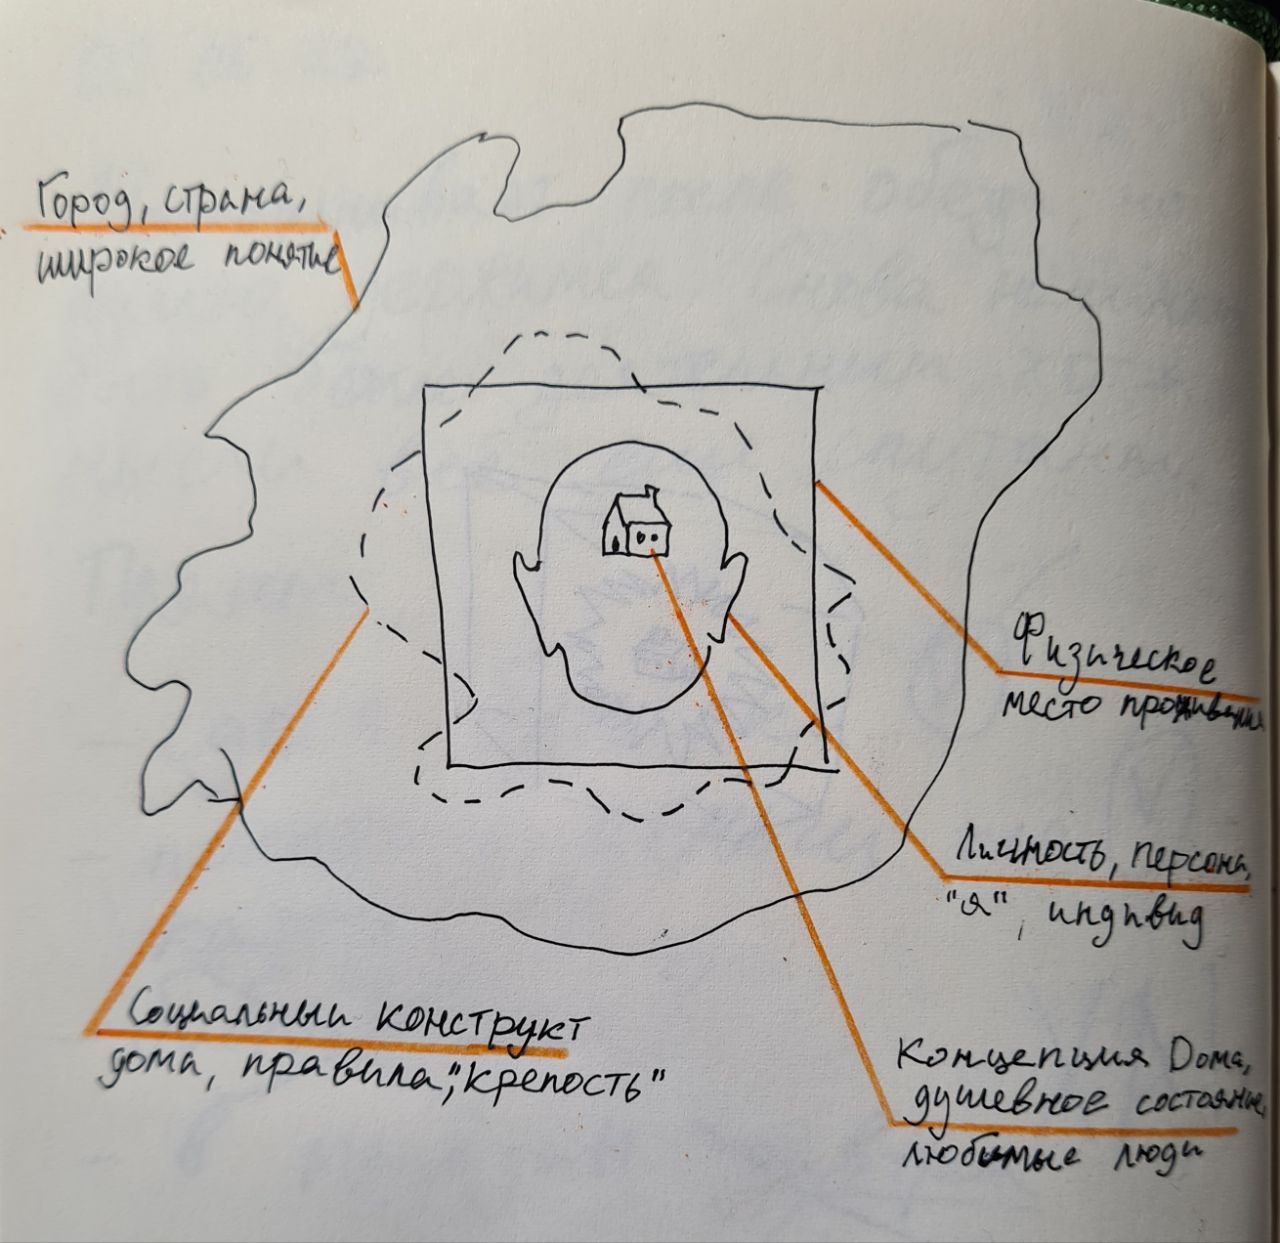 Город, страна,
широкое понятие
Физическое
место проживания
Личность, персона,
"я", индивид
Социальный конструкт
дома, правила, "крепость"
Концепция Дома,
душевное состояние,
любимые люди